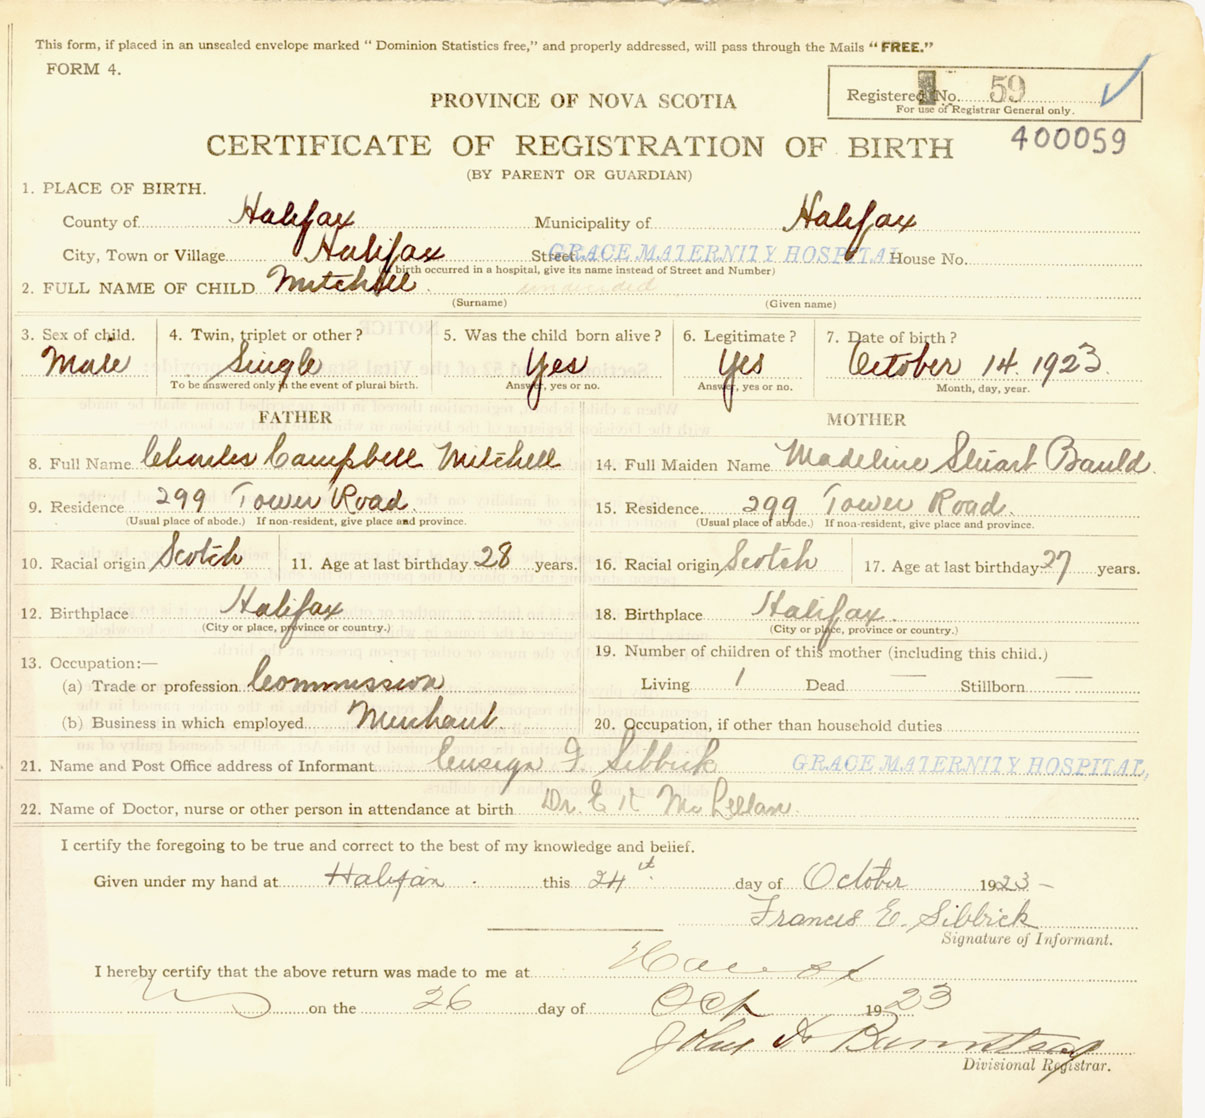 This form, if placed in an unsealed envelope marked “Dominion Statistics free,” and properly addressed, will pass through the Mails “FREE.”
FORM 4.
Registered No. 59
For use of Registrar General only.
PROVINCE OF NOVA SCOTIA
400059
CERTIFICATE OF REGISTRATION OF BIRTH
(BY PARENT OR GUARDIAN)
1. PLACE OF BIRTH.
County of Halifax Municipality of Halifax
City, Town or Village Halifax Street GRACE MATERNITY HOSPITAL House No.
(If birth occurred in a hospital, give its name instead of Street and Number)
2. FULL NAME OF CHILD Mitchell undecided
(Surname) (Given name)
3. Sex of child. 4. Twin, triplet or other? 5. Was the child born alive? 6. Legitimate? 7. Date of birth?
Male Single Yes Yes October 14. 1923.
To be answered only in the event of plural birth. Answer, yes or no. Answer, yes or no. Month, day, year.
FATHER MOTHER
8. Full Name Charles Campbell Mitchell 14. Full Maiden Name Madeline Stuart Bauld.
9. Residence 299 Tower Road. 15. Residence 299 Tower Road.
(Usual place of abode.) If non-resident, give place and province. (Usual place of abode.) If non-resident, give place and province.
10. Racial origin Scotch 11. Age at last birthday 28 years. 16. Racial origin Scotch 17. Age at last birthday 27 years.
12. Birthplace Halifax 18. Birthplace Halifax.
(City or place, province or country.) (City or place, province or country.)
13. Occupation:— 19. Number of children of this mother (including this child.)
(a) Trade or profession Commission Living 1 Dead — Stillborn —
(b) Business in which employed Merchant 20. Occupation, if other than household duties
21. Name and Post Office address of Informant Ensign F. Sibbick GRACE MATERNITY HOSPITAL,
22. Name of Doctor, nurse or other person in attendance at birth Dr. E K McLellan.
I certify the foregoing to be true and correct to the best of my knowledge and belief.
Given under my hand at Halifax. this 24th day of October 1923 –
Francis E. Sibbick
Signature of Informant.
I hereby certify that the above return was made to me at
on the 26 day of Oct 1923
John
Divisional Registrar.